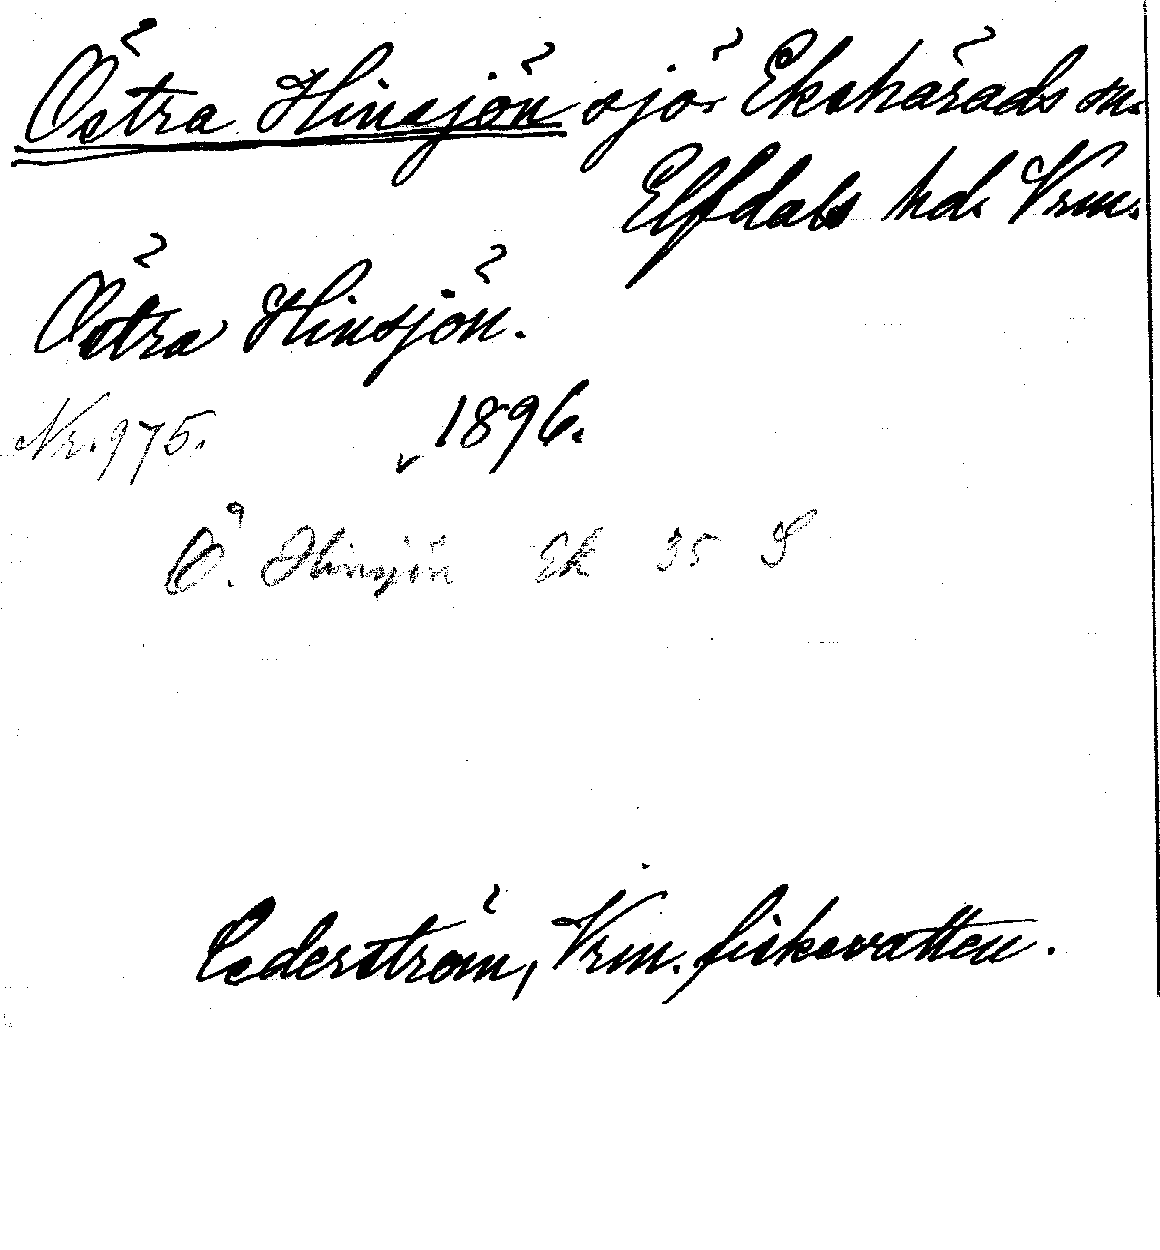 Östra Hinsjön sjö Ekshärads sn.
Elfdals hd. Vrm.
Östra Hinsjön.
Nr. 975. 1896.
Ö. Hinsjön Ek 35 S
Cederström, Vrm. fiskevatten.